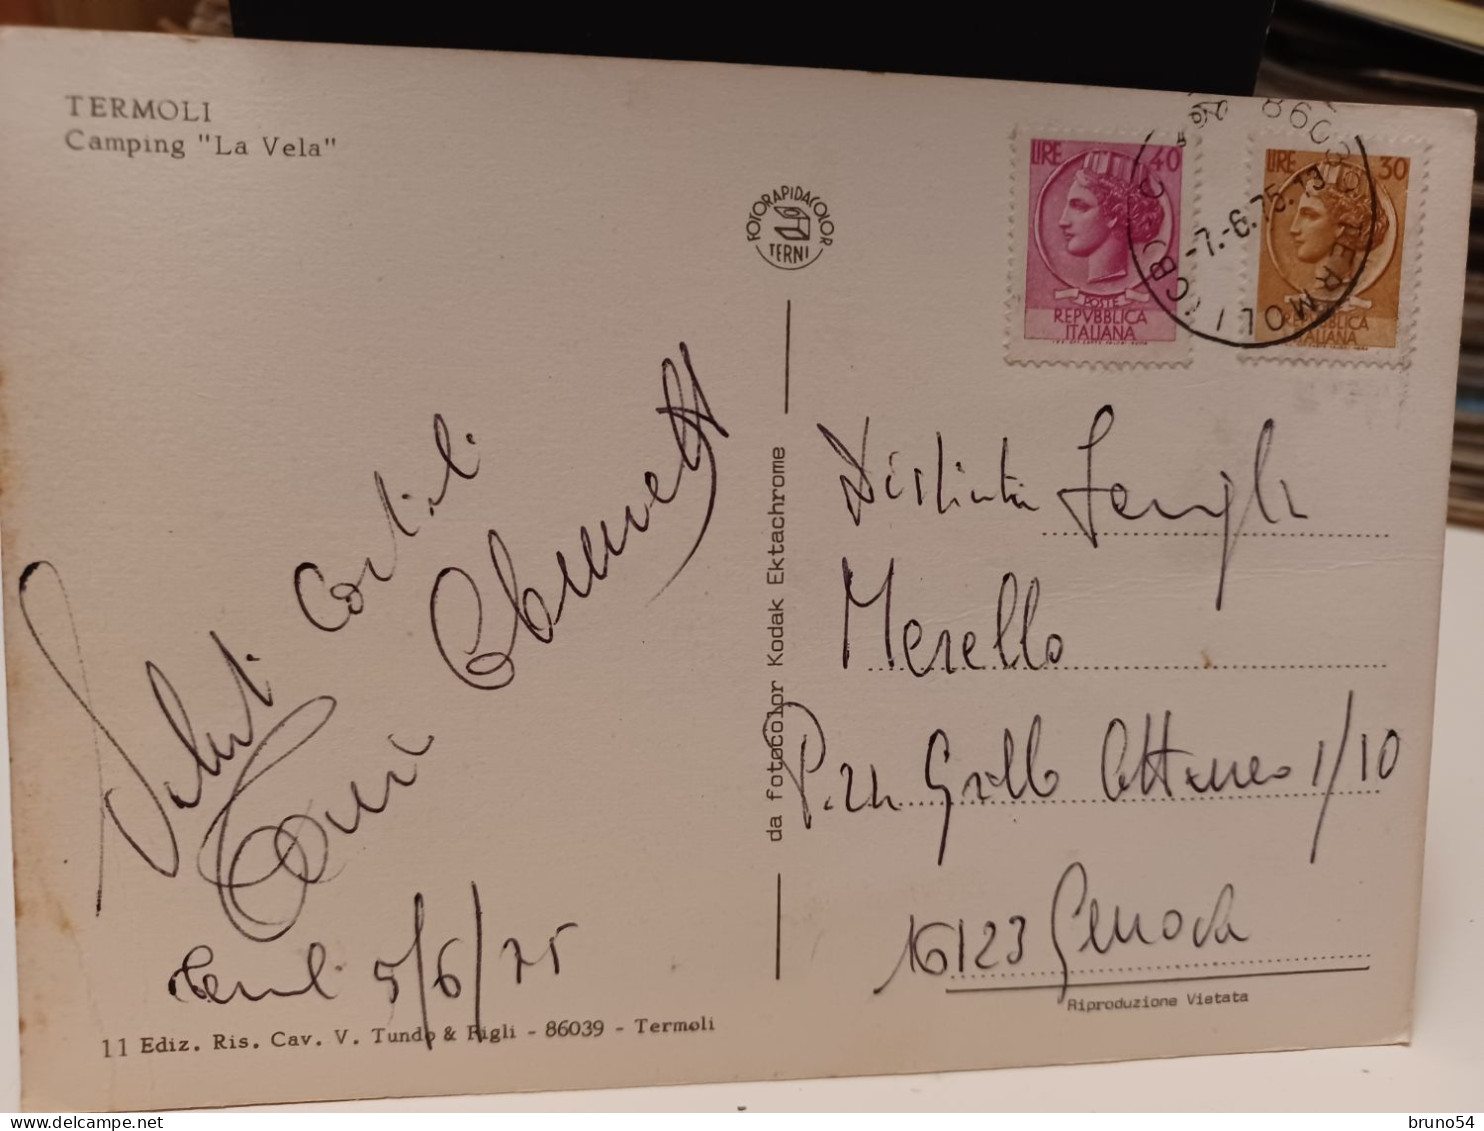 TERMOLI
Camping "La Vela"
FOTORAPIDACOLOR
TERNI
LIRE 40
POSTE
REPVBBLICA
ITALIANA
LIRE 30
REPVBBLICA
ITALIANA
86039 TERMOLI (CB)
-7.-6.75.19
Saluti Cordiali
Termoli 5/6/75
da fotocolor Kodak Ektachrome
Distinta Famiglia
Merello
P.zza Grillo Cattaneo 1/10
16123 Genova
Riproduzione Vietata
11 Ediz. Ris. Cav. V. Tundo & Figli - 86039 - Termoli
bruno54